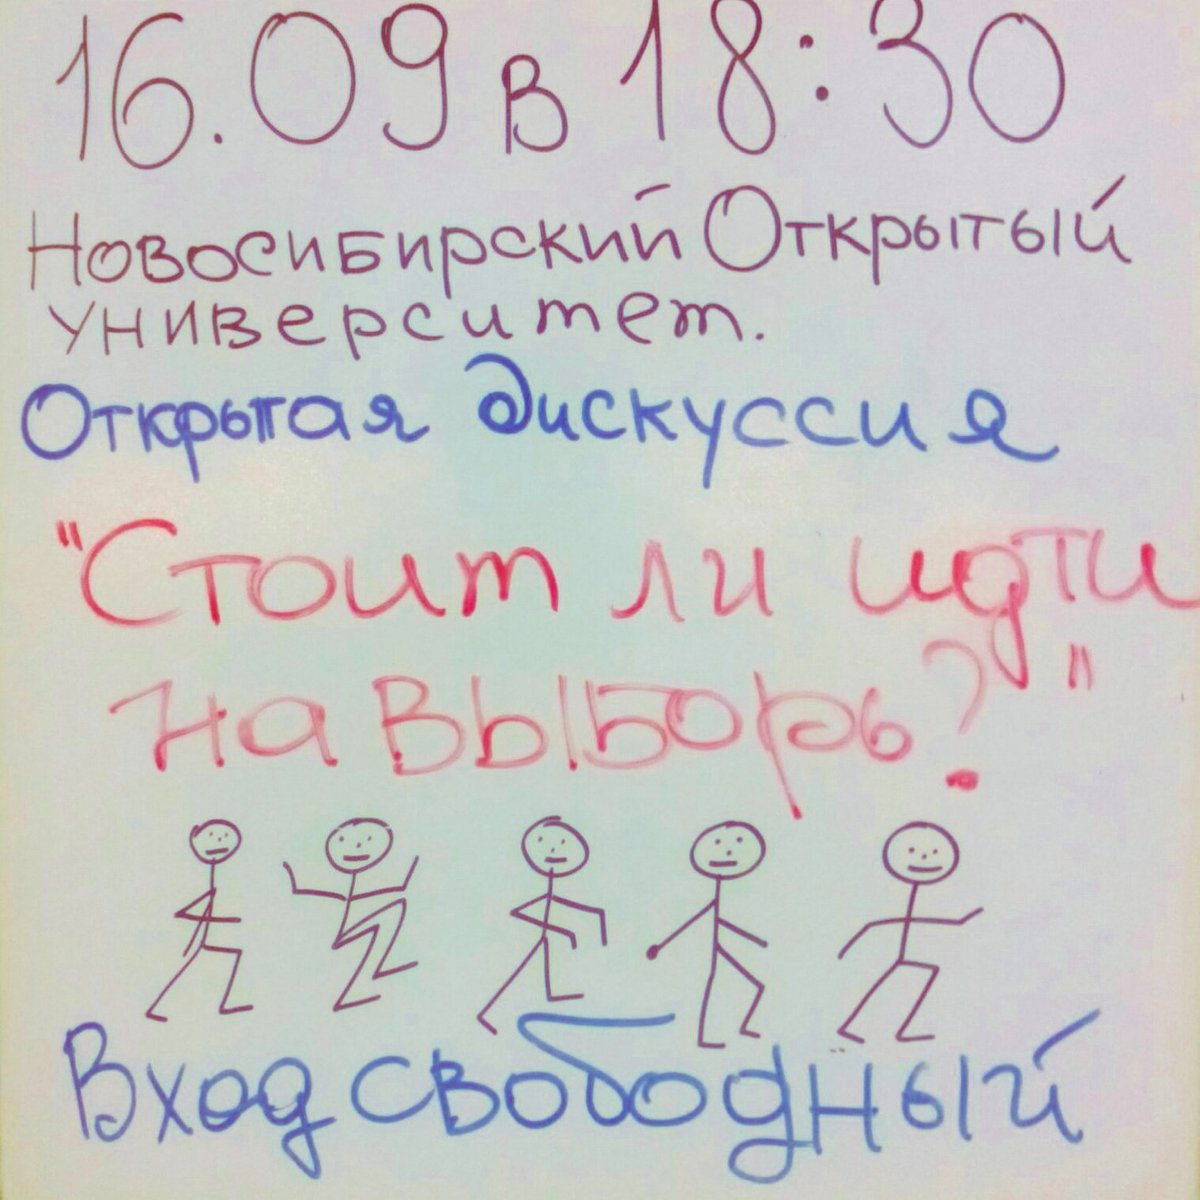 16.09 в 18:30
Новосибирский Открытый
университет.
Открытая дискуссия
"Стоит ли идти
на выборы?"
Вход свободный